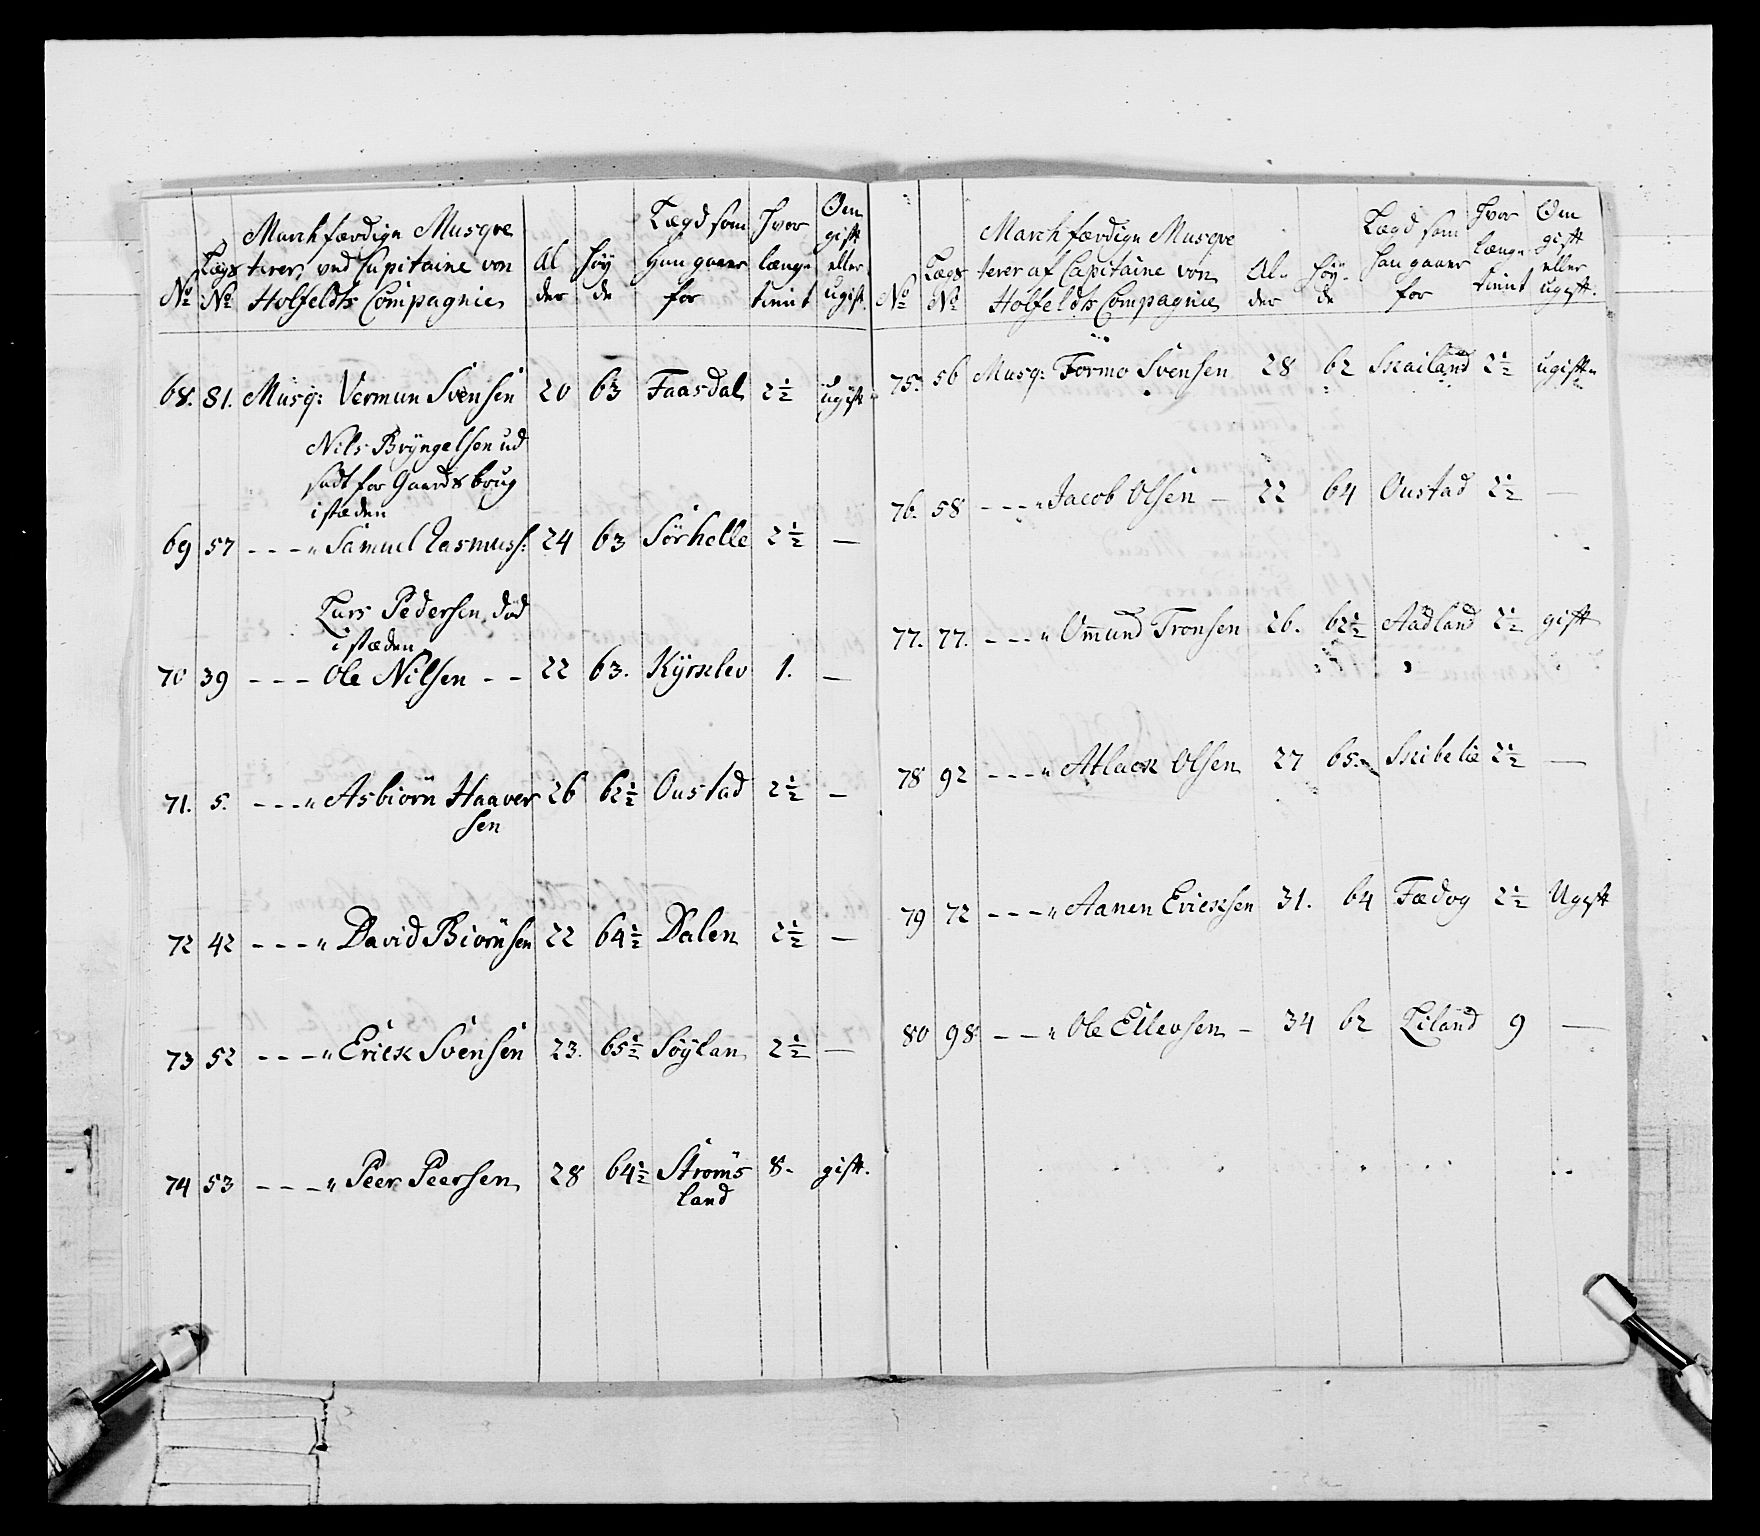 No
Lægs No
March færdige Musqve
terer, ved Capitaine von
Holfeldts Compagnie
Al
der
Høy
de
Lægd som
han gaaer
for
hvor
længe
tiænt
Om
gift
eller
ugift.
68. 81. Musq: Vermun Svensen 20 63 Faasdal 2½ ugift
Nils Bryngelsen ud
sadt for Gaards brug
i stæden
69 57 - - - " Samuel Rasmuss: 24 63 Sörhelle 2½ —
Lars Pedersen, död
i stæden
70 39 - - - Ole Nilsen - - 22 63. Kyrklev 1. —
71. 5. - - - " Asbiörn Haaver 26 62½ Oustad 2½ —
sen
72 42 - - - " David Biörnsen 22 64½ Dalen 2½ —
73 52 - - - " Erick Svensen 23. 65½ Söylan 2½ —
74 53 - - - " Peer Peersen 28 64½ Ströms 8- gift.
land
No
Lægs No
March færdige Musqve
terer af Capitaine von
Holfeldts Compagnie
Al-
der
Høy-
de
Lægd som
han gaaer
for
hvor
længe
tiænt
Om
gift
eller
ugift.
75. 56 Musq: Tormo Svensen 28 62 Skailand 2½ ugift
76. 58 - - - " Jacob Olsen — 22 64 Oustad 2½ —
77. 77. - - - " Omund Tronsen 26. 62½ Aadland 2½ gift
78 92 - - - " Atlack Olsen 27 65. Skibelie 2½ —
79 72 - - - " Aanen Ericksen 31. 64 Fædog 2½ Ugift
80 98 - - " Ole Ellevsen - 34 62 Liland 9 —